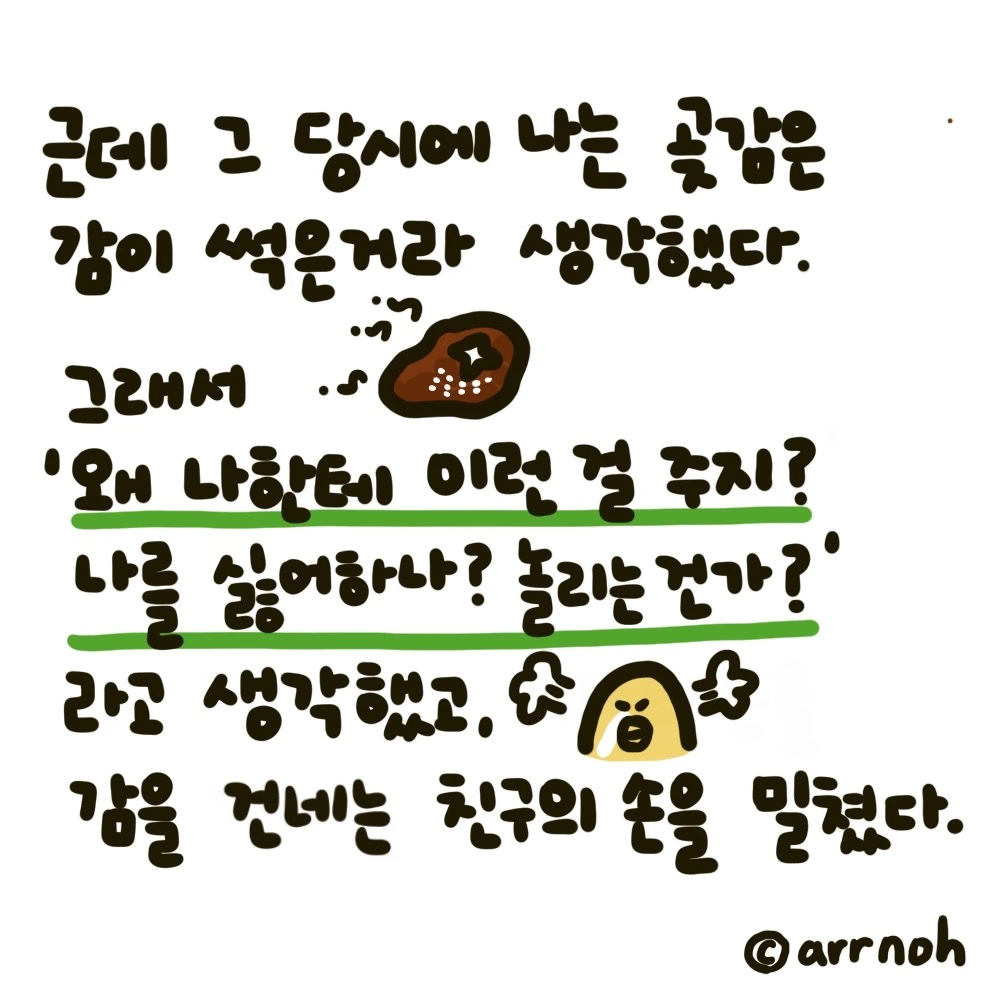 근데 그 당시에 나는 곶감은
감이 썩은거라 생각했다.
그래서
'왜 나한테 이런 걸 주지?
나를 싫어하나? 놀리는건가?'
라고 생각했고,
감을 건네는 친구의 손을 밀쳤다.
©arrnoh